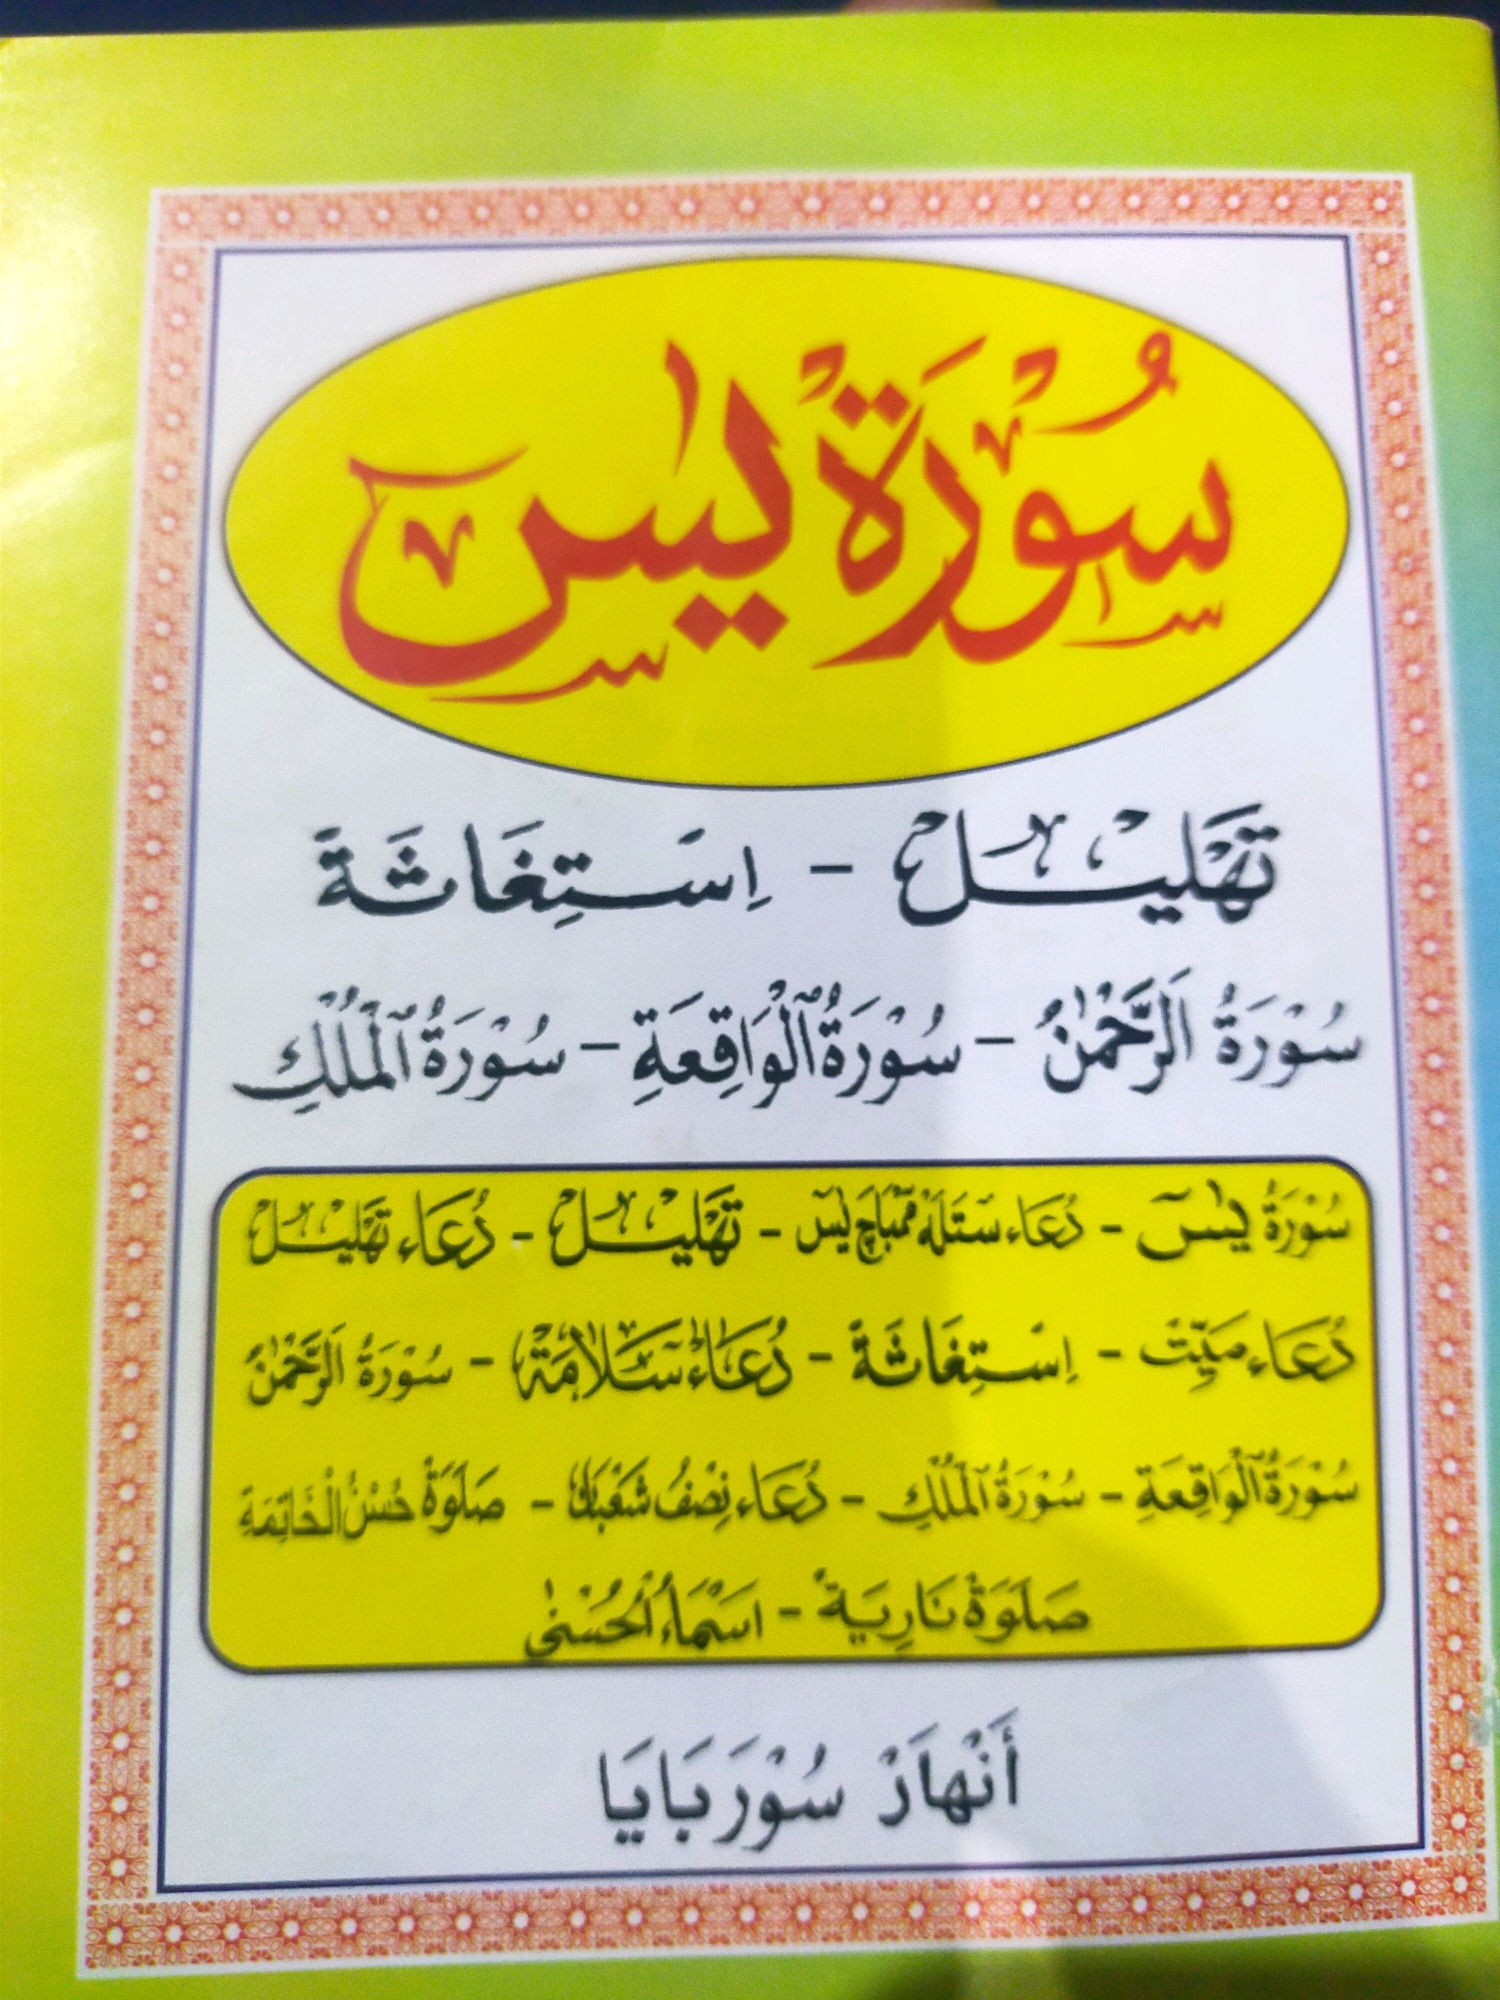 سُوْرَةْ يٰسۤ
تَهْلِيْل - اِسْتِغَاثَةَ
سُوْرَةُ الَرَّحْمٰنُ - سُوْرَةُ ٱلْوَاقِعَةِ - سُوْرَةُ ٱلْمُلْكِ
سُوْرَةُ يٰسۤ - دُعَاء سَتَلَهْ مَمْبَاچَ يٰسۤ - تَهْلِيْل - دُعَاء تَهْلِيْل
دُعَاء مَيِّتْ - اِسْتِغَاثَةَ - دُعَاءْ سَلَامَةْ - سُوْرَةُ الَرَّحْمٰنُ
سُوْرَةُ ٱلْوَاقِعَةِ - سُوْرَةُ ٱلْمُلْكِ - دُعَاء نِصْفُ شَعْبَانْ - صَلَوَةْ حُسْنُ الْخَاتِمَةِ
صَلَوَةْ نَارِيَةْ - اَسْمَاءُ الْحُسْنٰى
أَنْهَارْ سُوْرَبَايَا